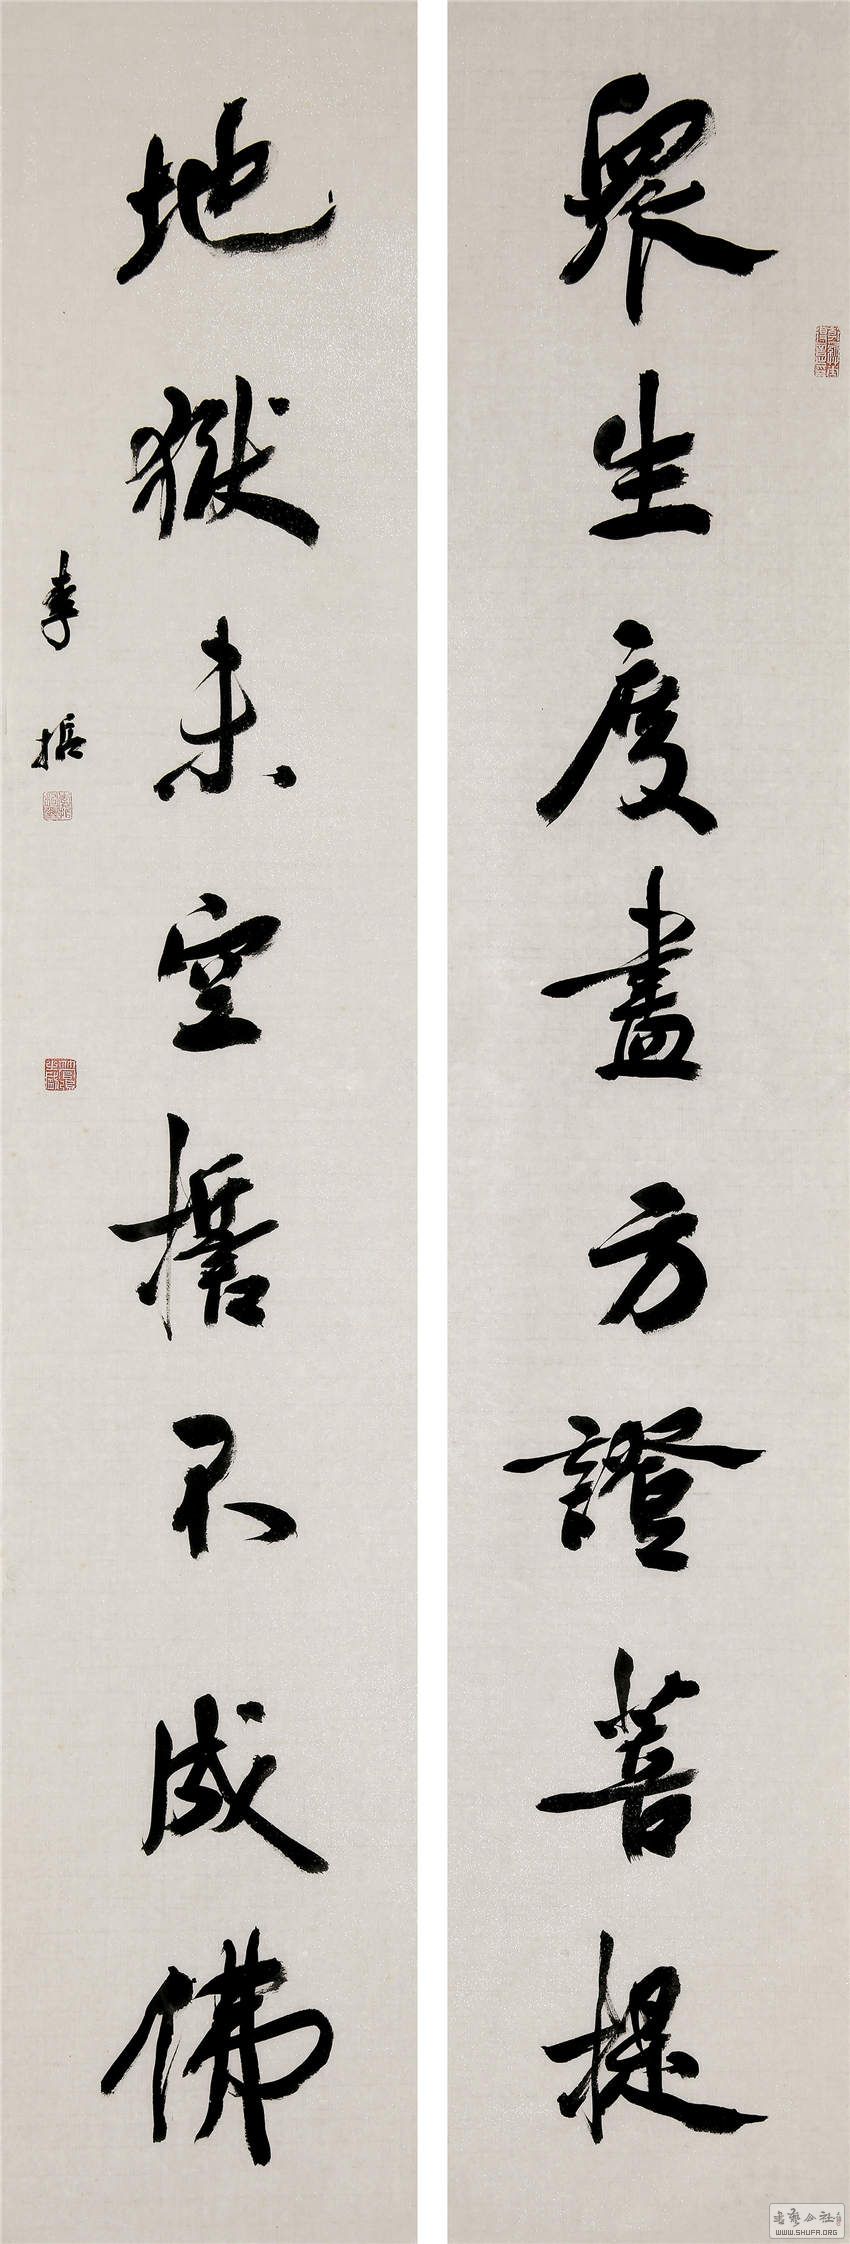 眾生度盡方證菩提
地獄未空誓不成佛
李
書藝公社
WWW.SHUFA.ORG